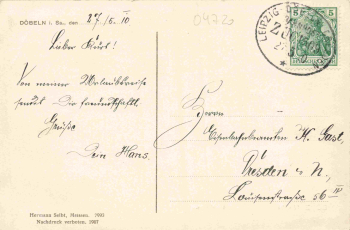 DÖBELN i. Sa., den 27/5. 10
04720
Lieber Kurt!
Von meiner Urlaubsreise
sendet Dir freundschaftl.
Grüße
Dein Hans.
Herrn
Eisenbahnbeamten K. Gast,
Dresden a. N.,
Louisenstraße 56 IV
LEIPZIG
5 5
Hermann Seibt, Meissen. 7993
Nachdruck verboten, 1907